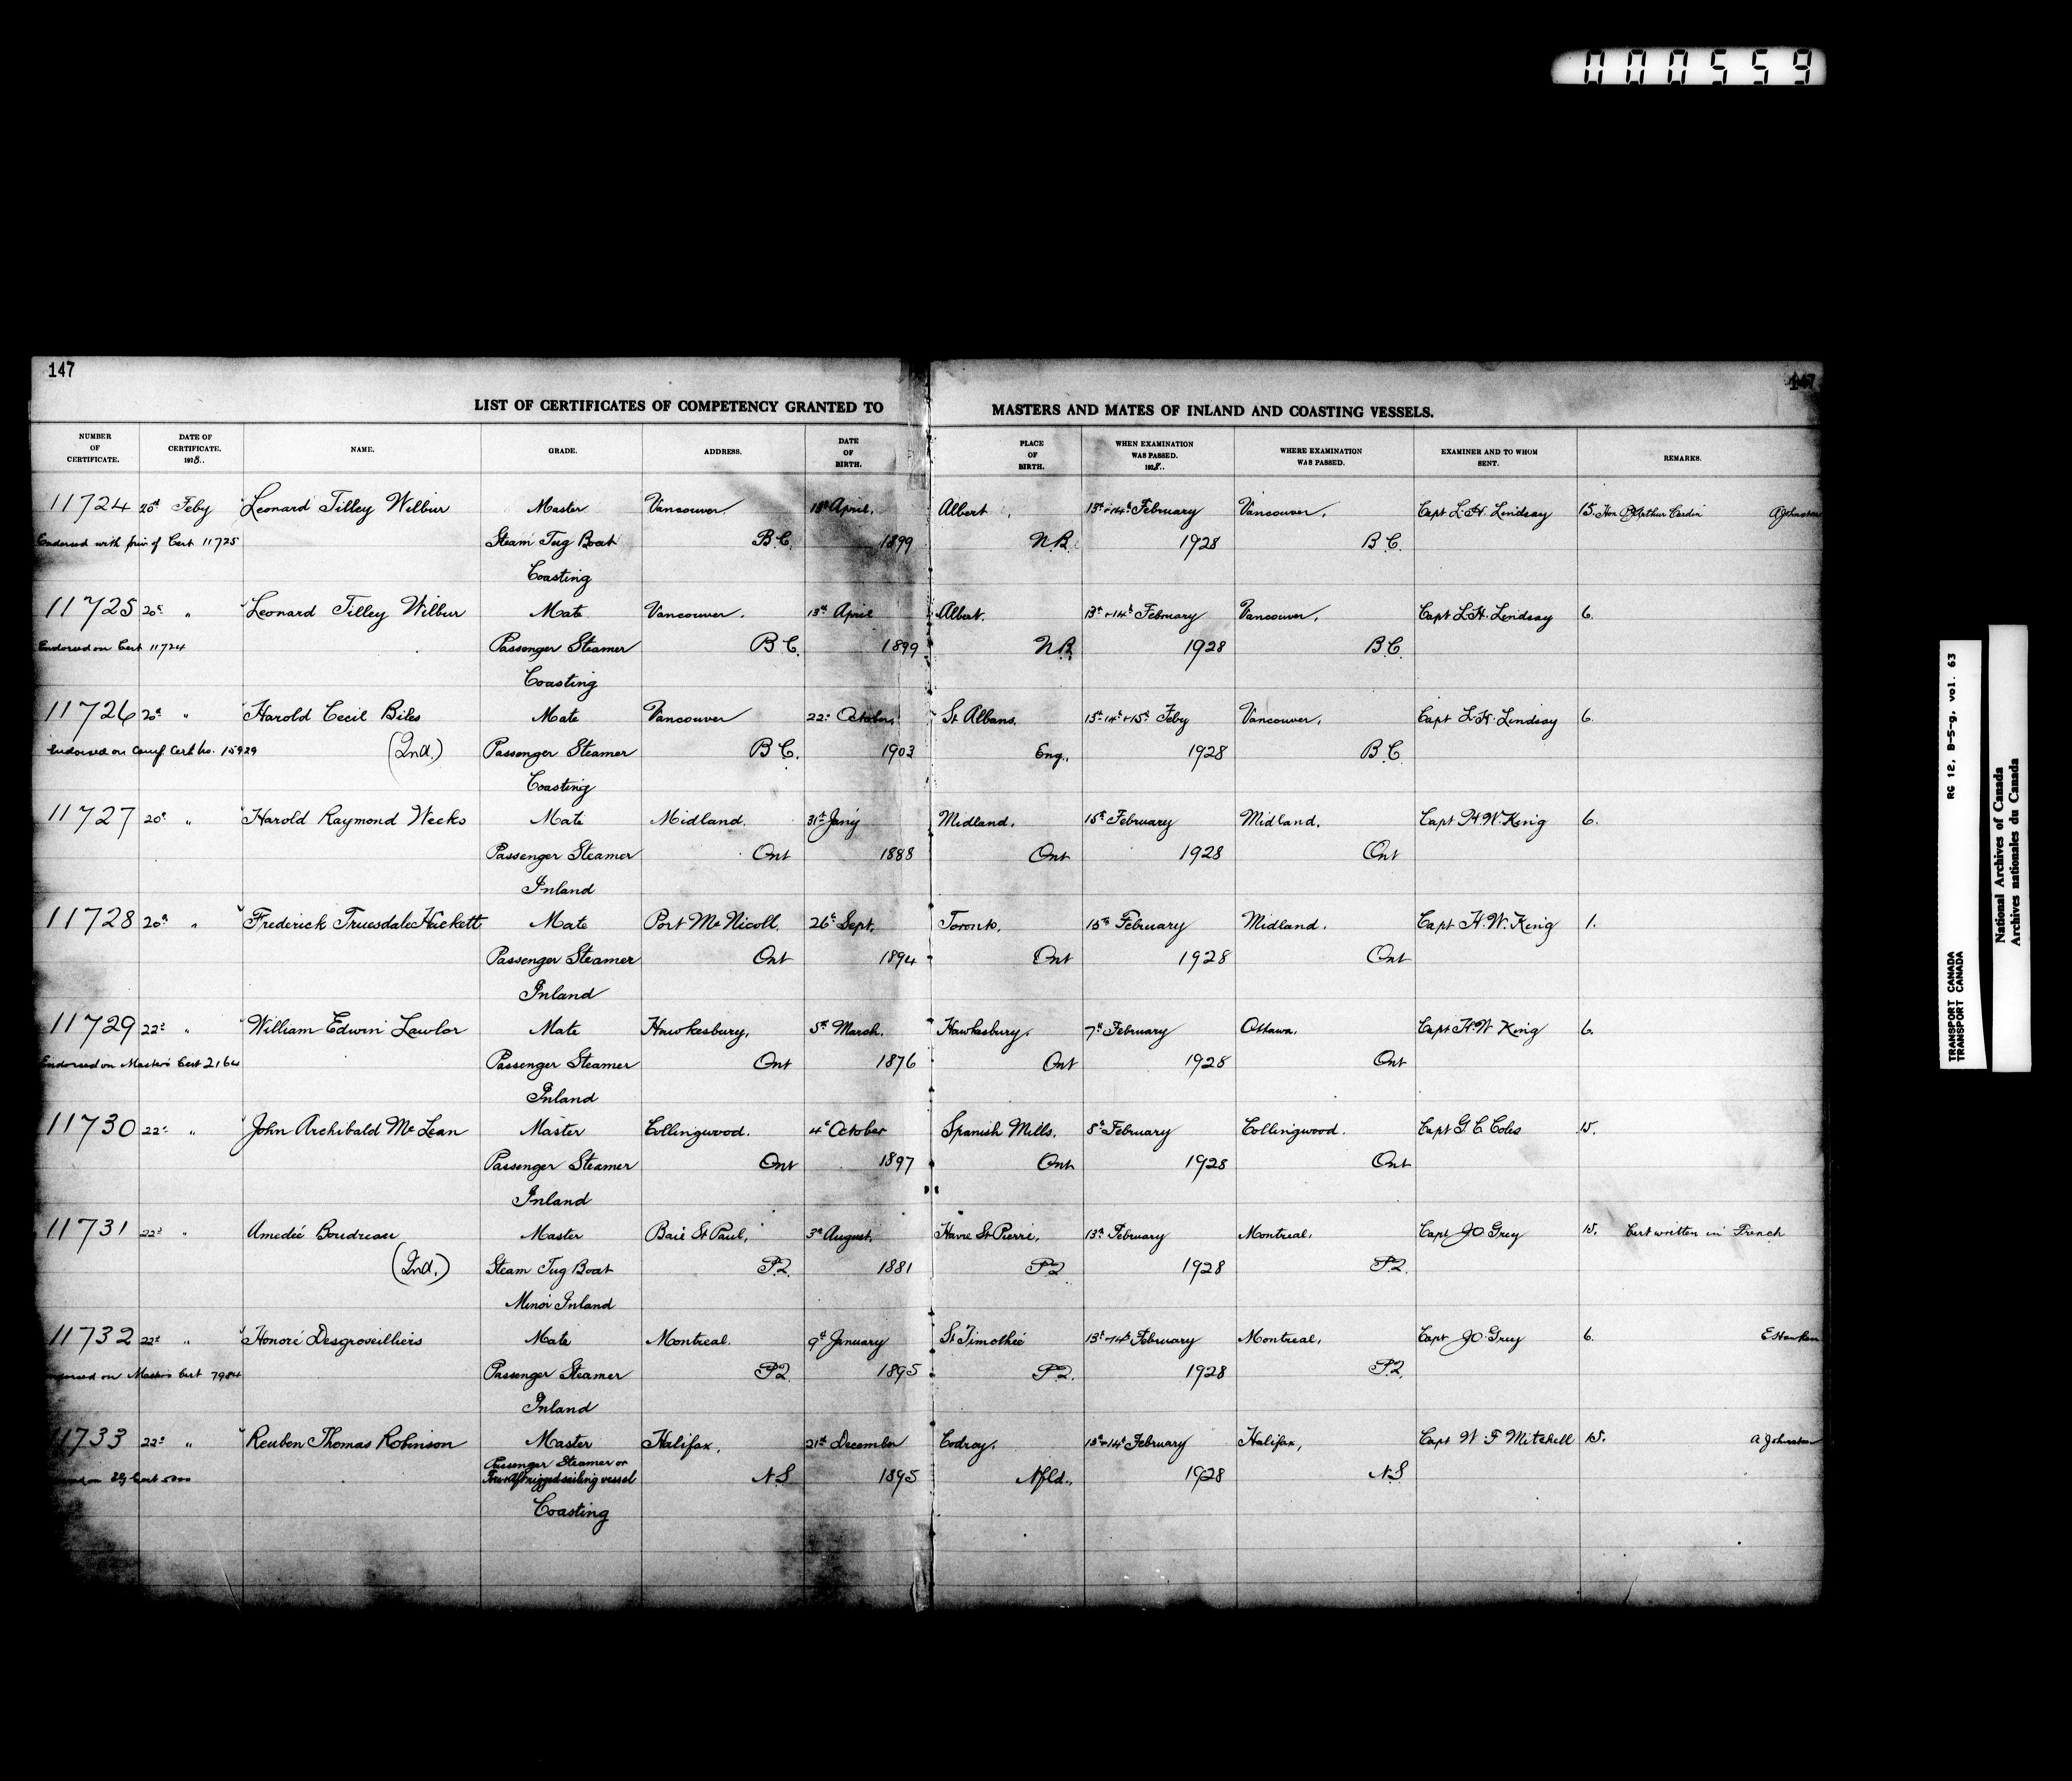 000559
147
147
LIST OF CERTIFICATES OF COMPETENCY GRANTED TO MASTERS AND MATES OF INLAND AND COASTING VESSELS.
NUMBER OF CERTIFICATE. DATE OF CERTIFICATE. 1928.. NAME. GRADE. ADDRESS. DATE OF BIRTH. PLACE OF BIRTH. WHEN EXAMINATION WAS PASSED. 1928.. WHERE EXAMINATION WAS PASSED. EXAMINER AND TO WHOM SENT. REMARKS.
11724 20th Feby Leonard Tilley Wilbur Master Vancouver. 13th April. Albert, 13th & 14th February Vancouver, Capt L.H. Lindsay 15. Hon P J Arthur Cardin A Johnston
Endorsed with priv of Cert 11725 Steam Tug Boat B.C. 1899 N.B. 1928 B.C.
Coasting
11725 20th " Leonard Tilley Wilbur Mate Vancouver. 13th April Albert. 13th & 14th February Vancouver, Capt L.H. Lindsay 6.
Endorsed on Cert 11724 Passenger Steamer B.C. 1899 N.B. 1928 B.C.
Coasting
11726 20th " Harold Cecil Biles Mate Vancouver 22nd October, St Albans. 13th 14th & 15th Feby Vancouver, Capt L.H. Lindsay 6.
Endorsed on Cert No. 15929 (2nd.) Passenger Steamer B.C. 1903 Eng., 1928 B.C.
Coasting
11727 20th " Harold Raymond Weeks Mate Midland. 31st Jany Midland, 15th February Midland. Capt H.W. King 6.
Passenger Steamer Ont 1888 Ont 1928 Ont
Inland
11728 20th " Frederick Truesdale Hackett Mate Port McNicoll. 26th Sept. Toronto. 15th February Midland. Capt H.W. King 1.
Passenger Steamer Ont 1894 Ont 1928 Ont
Inland
11729 22nd " William Edwin Lawlor Mate Hawkesbury, 5th March. Hawkesbury. 7th February Ottawa. Capt H.W. King 6.
Endorsed on Masters Cert 2164 Passenger Steamer Ont 1876 Ont 1928 Ont
Inland
11730 22nd " John Archibald McLean Master Collingwood. 4th October Spanish Mills. 8th February Collingwood. Capt G.C. Coles 15.
Passenger Steamer Ont 1897 Ont 1928 Ont
Inland
11731 22nd " Amedée Boudreau Master Baie St Paul, 3rd August. Havre St Pierre, 13th February Montreal, Capt J.O. Grey 15. Cert written in French
(2nd.) Steam Tug Boat P.Q. 1881 P.Q 1928 P.Q.
Minor Inland
11732 22nd " Honoré Desgroseilliers Mate Montreal. 9th January St Timothée 13th & 14th February Montreal, Capt J.O. Grey 6. E Hawken
Endorsed on Masters Cert 7984 Passenger Steamer P.Q. 1895 P.Q. 1928 P.Q.
Inland
11733 22nd " Reuben Thomas Robinson Master Halifax, 21st December Codroy. 13th & 14th February Halifax, Capt W.F. Mitchell 15. A Johnston
Cert Passenger Steamer or Fore & Aft rigged sailing vessel N.S 1895 Nfld., 1928 N.S
Coasting
TRANSPORT CANADA RG 12, B-5-g, vol. 63
TRANSPORT CANADA
National Archives of Canada
Archives nationales du Canada